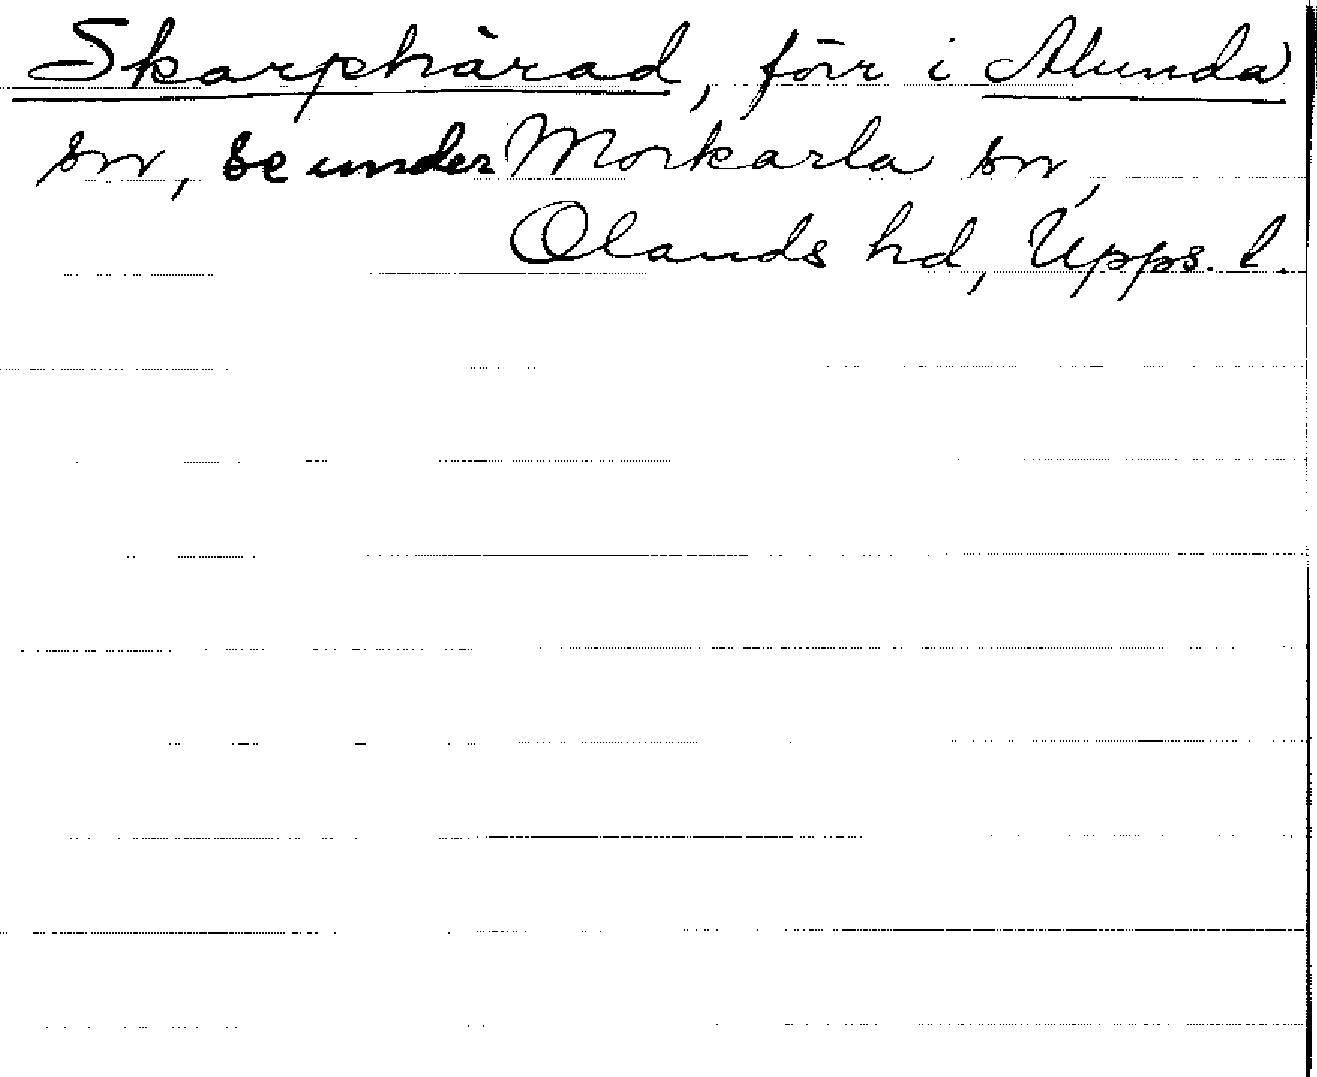 Skarphärad, förr i Alunda
sn, se under Morkarla sn,
Olands hd, Upps. l.